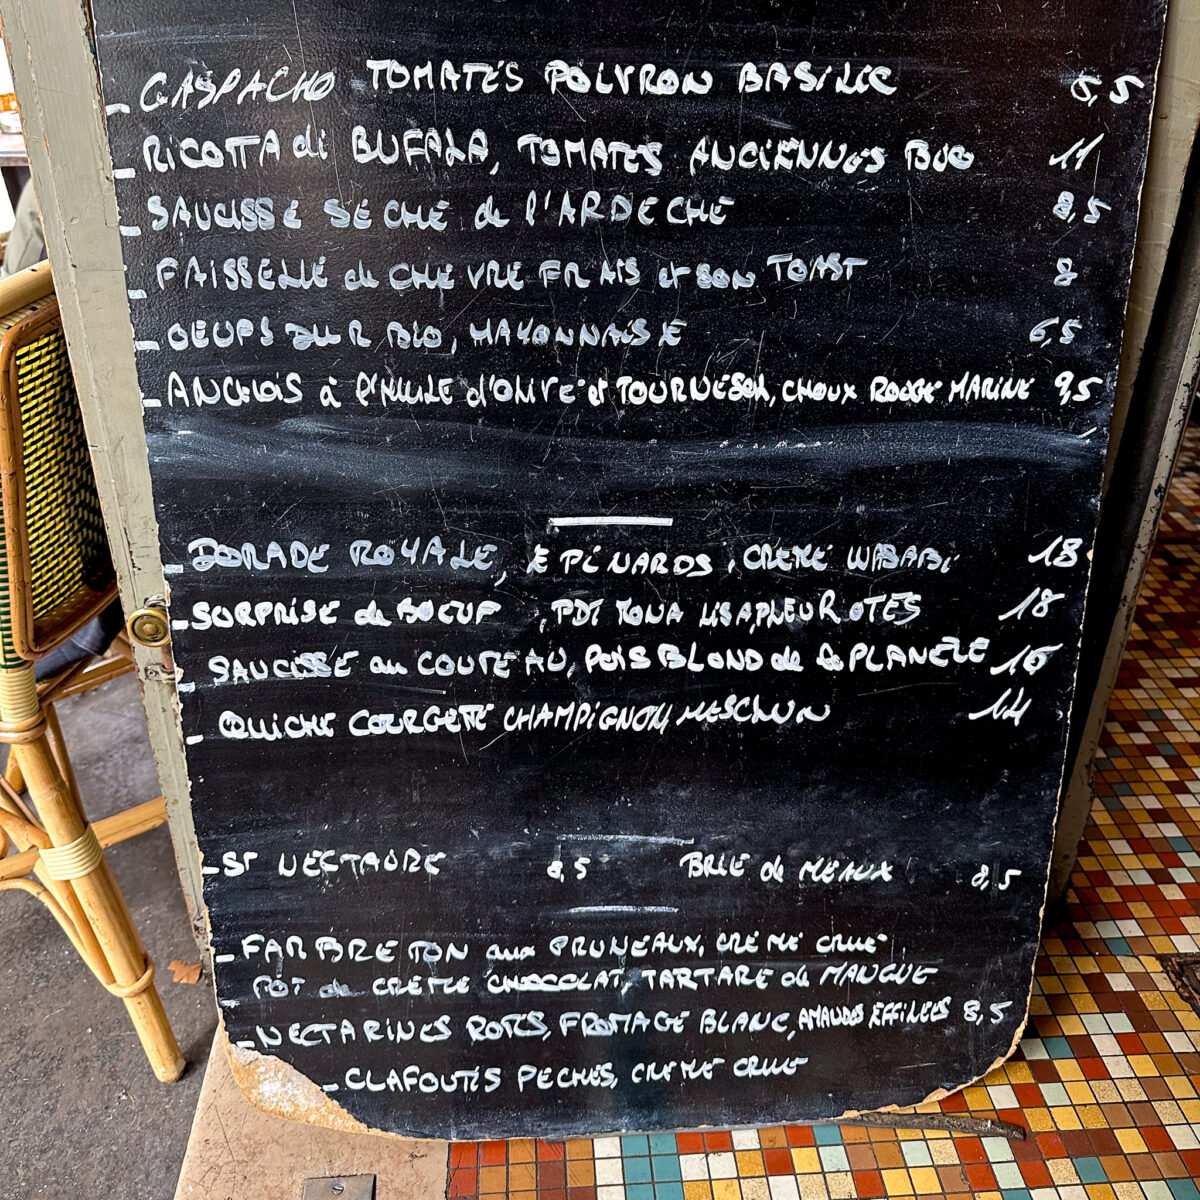 - GASPACHO TOMATES POIVRON BASILIC 6,5
- RICOTTA di BUFALA, TOMATES ANCIENNES BIO 11
- SAUCISSE SECHE de l'ARDECHE 8,5
- FAISSELLE de CHEVRE FRAIS et son TOAST 8
- OEUFS DUR BIO, MAYONNAISE 6,5
- ANCHOIS à l'HUILE d'OLIVE et TOURNESOL, CHOUX ROUGE MARINE 9,5
- DORADE ROYALE, EPINARDS, CREME WASABI 18
- SORPRISE de BOEUF, PDT PLEUROTES 18
- SAUCISSE au COUTEAU, POIS BLOND de la PLANEZE 16
- QUICHE COURGETTE CHAMPIGNON, MESCLUN 14
- ST NECTAIRE 8,5 BRIE de MEAUX 8,5
- FAR BRETON aux PRUNEAUX, CREME CRUE
- POT de CREME CHOCOLAT, TARTARE de MANGUE
- NECTARINES ROTIS, FROMAGE BLANC, AMANDES EFFILEES 8,5
- CLAFOUTIS PECHES, CREME CRUE